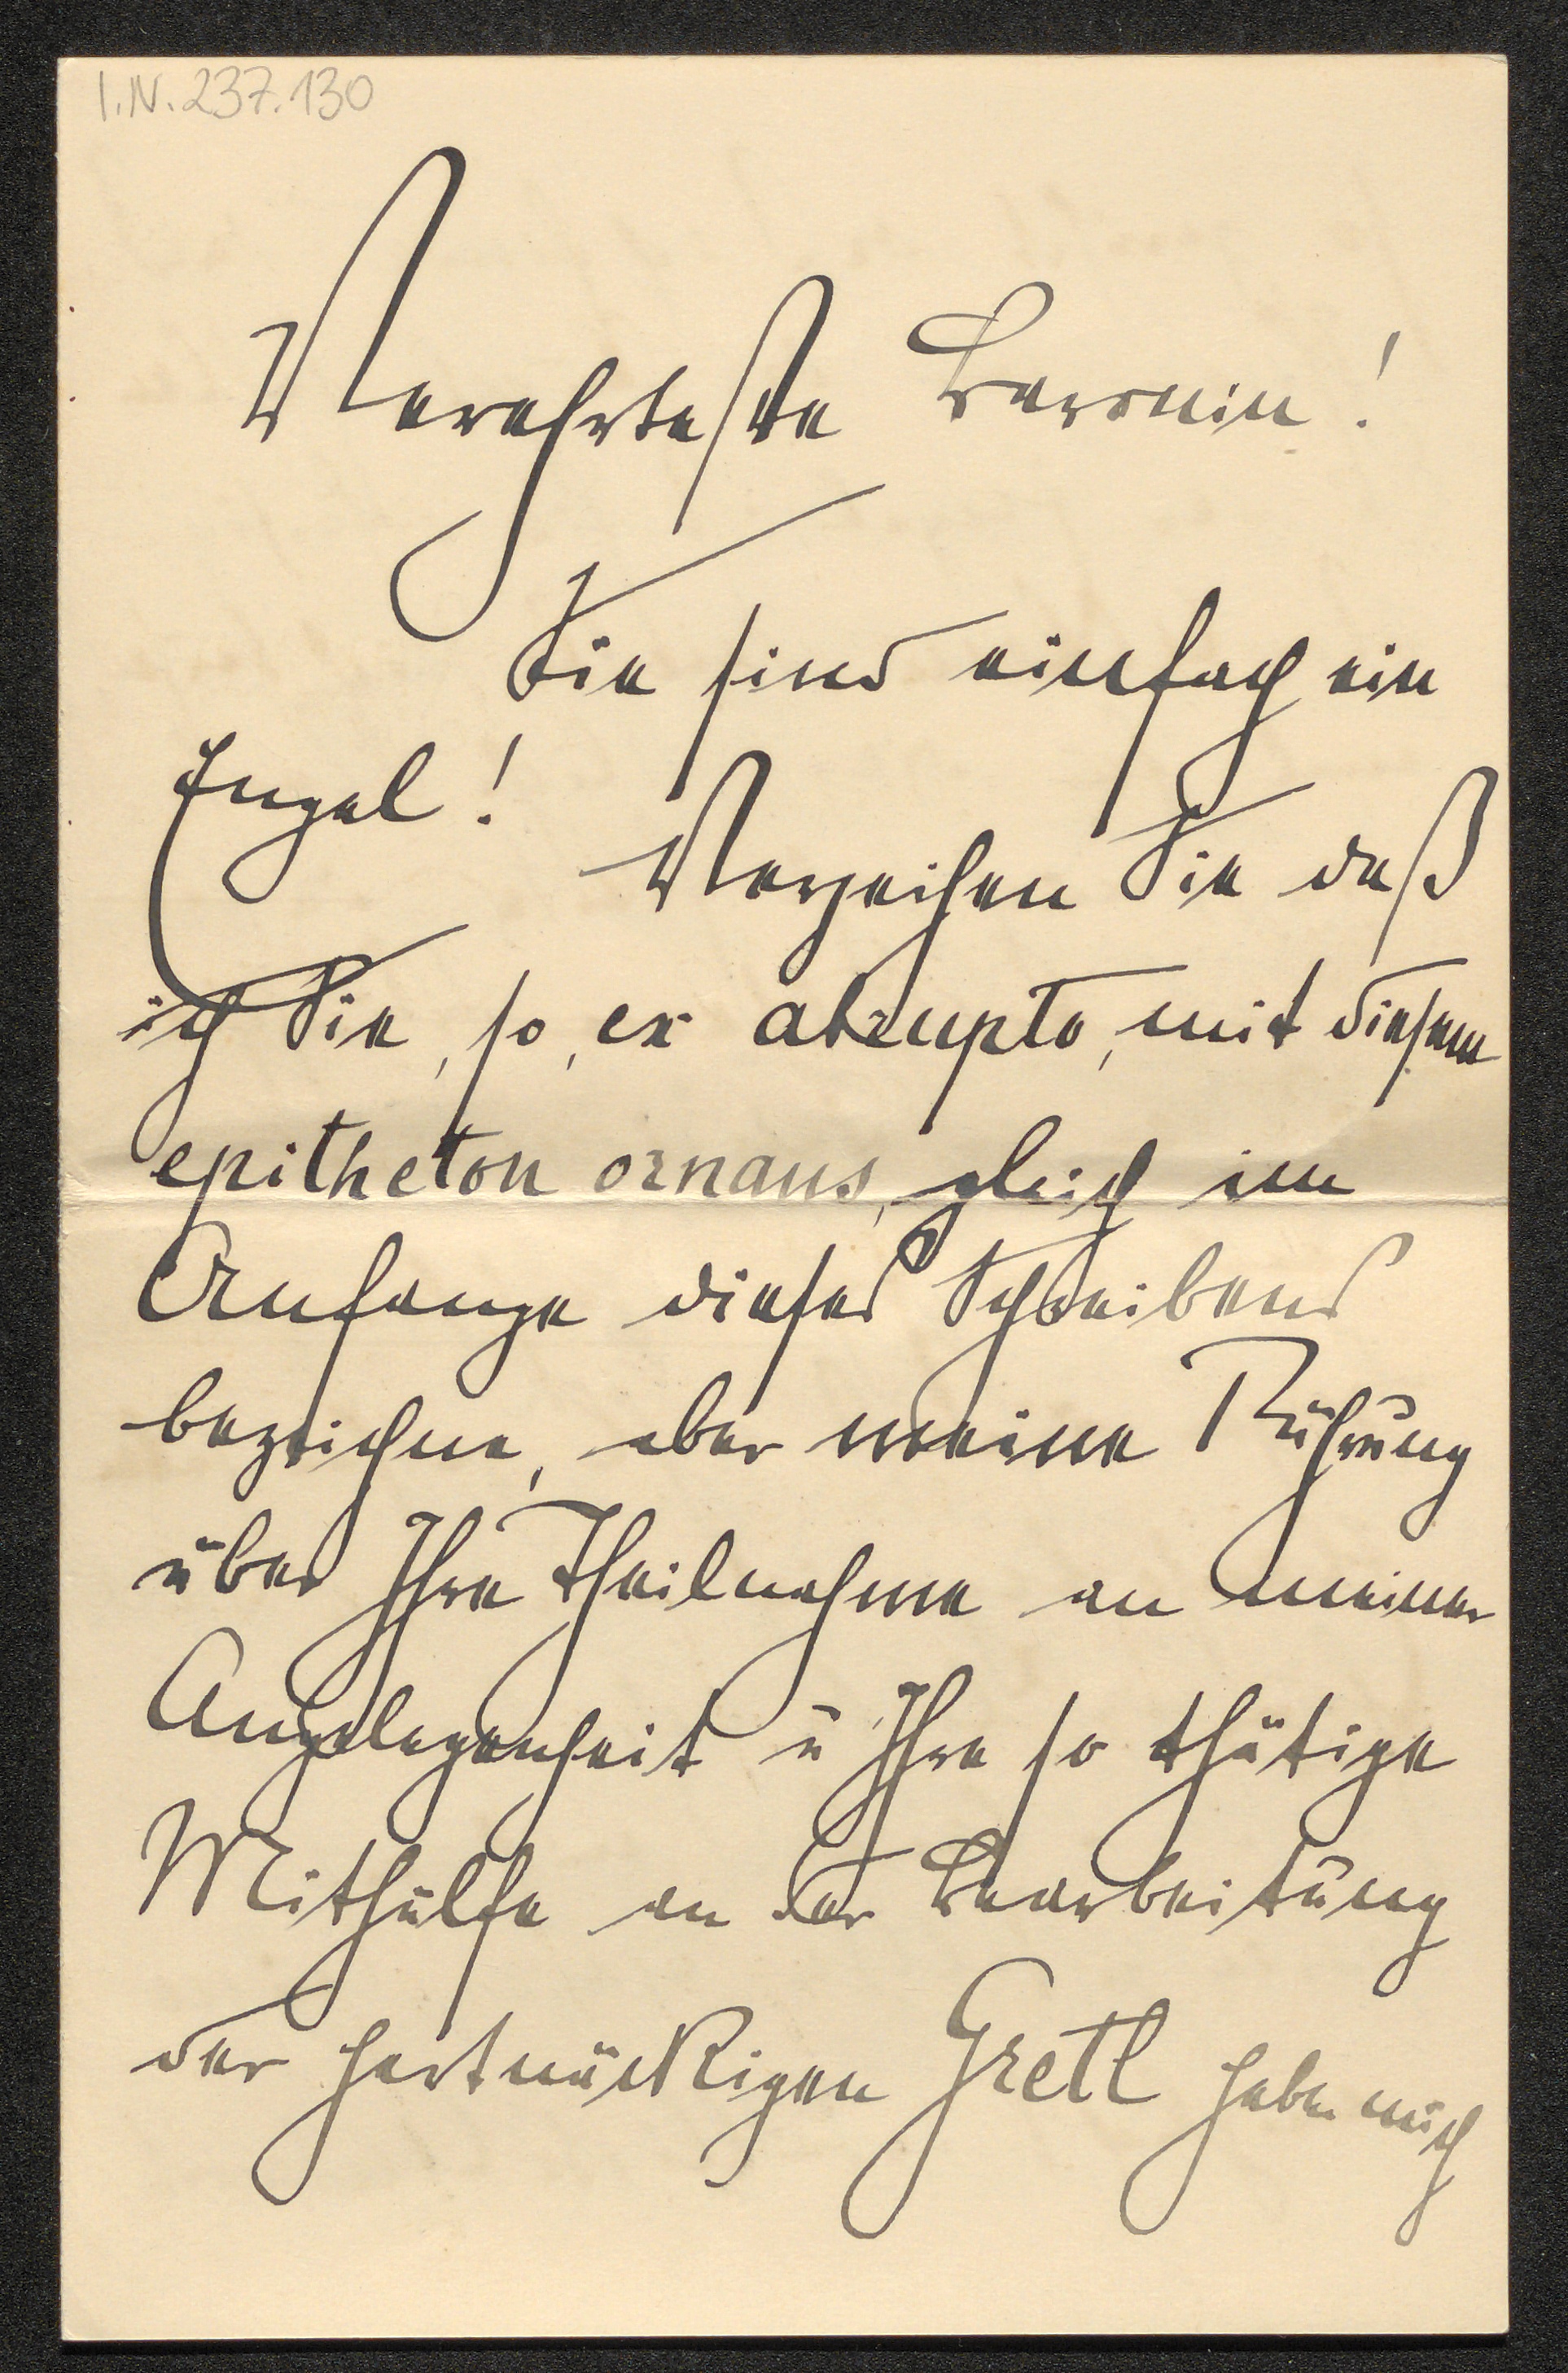 I.N. 237.130
Verehrteste Baronin!
Sie sind einfach ein
Engel! Verzeihen Sie daß
ich Sie, so, ex abrupto, mit diesem
epitheton ornans, gleich im
Anfange dieses Schreibens
bezeichne, aber meine Rührung
über Ihre Theilnahme an meiner
Angelegenheit u Ihre so thätige
Mithülfe an der Bearbeitung
der hartnäckigen Gretl haben mich